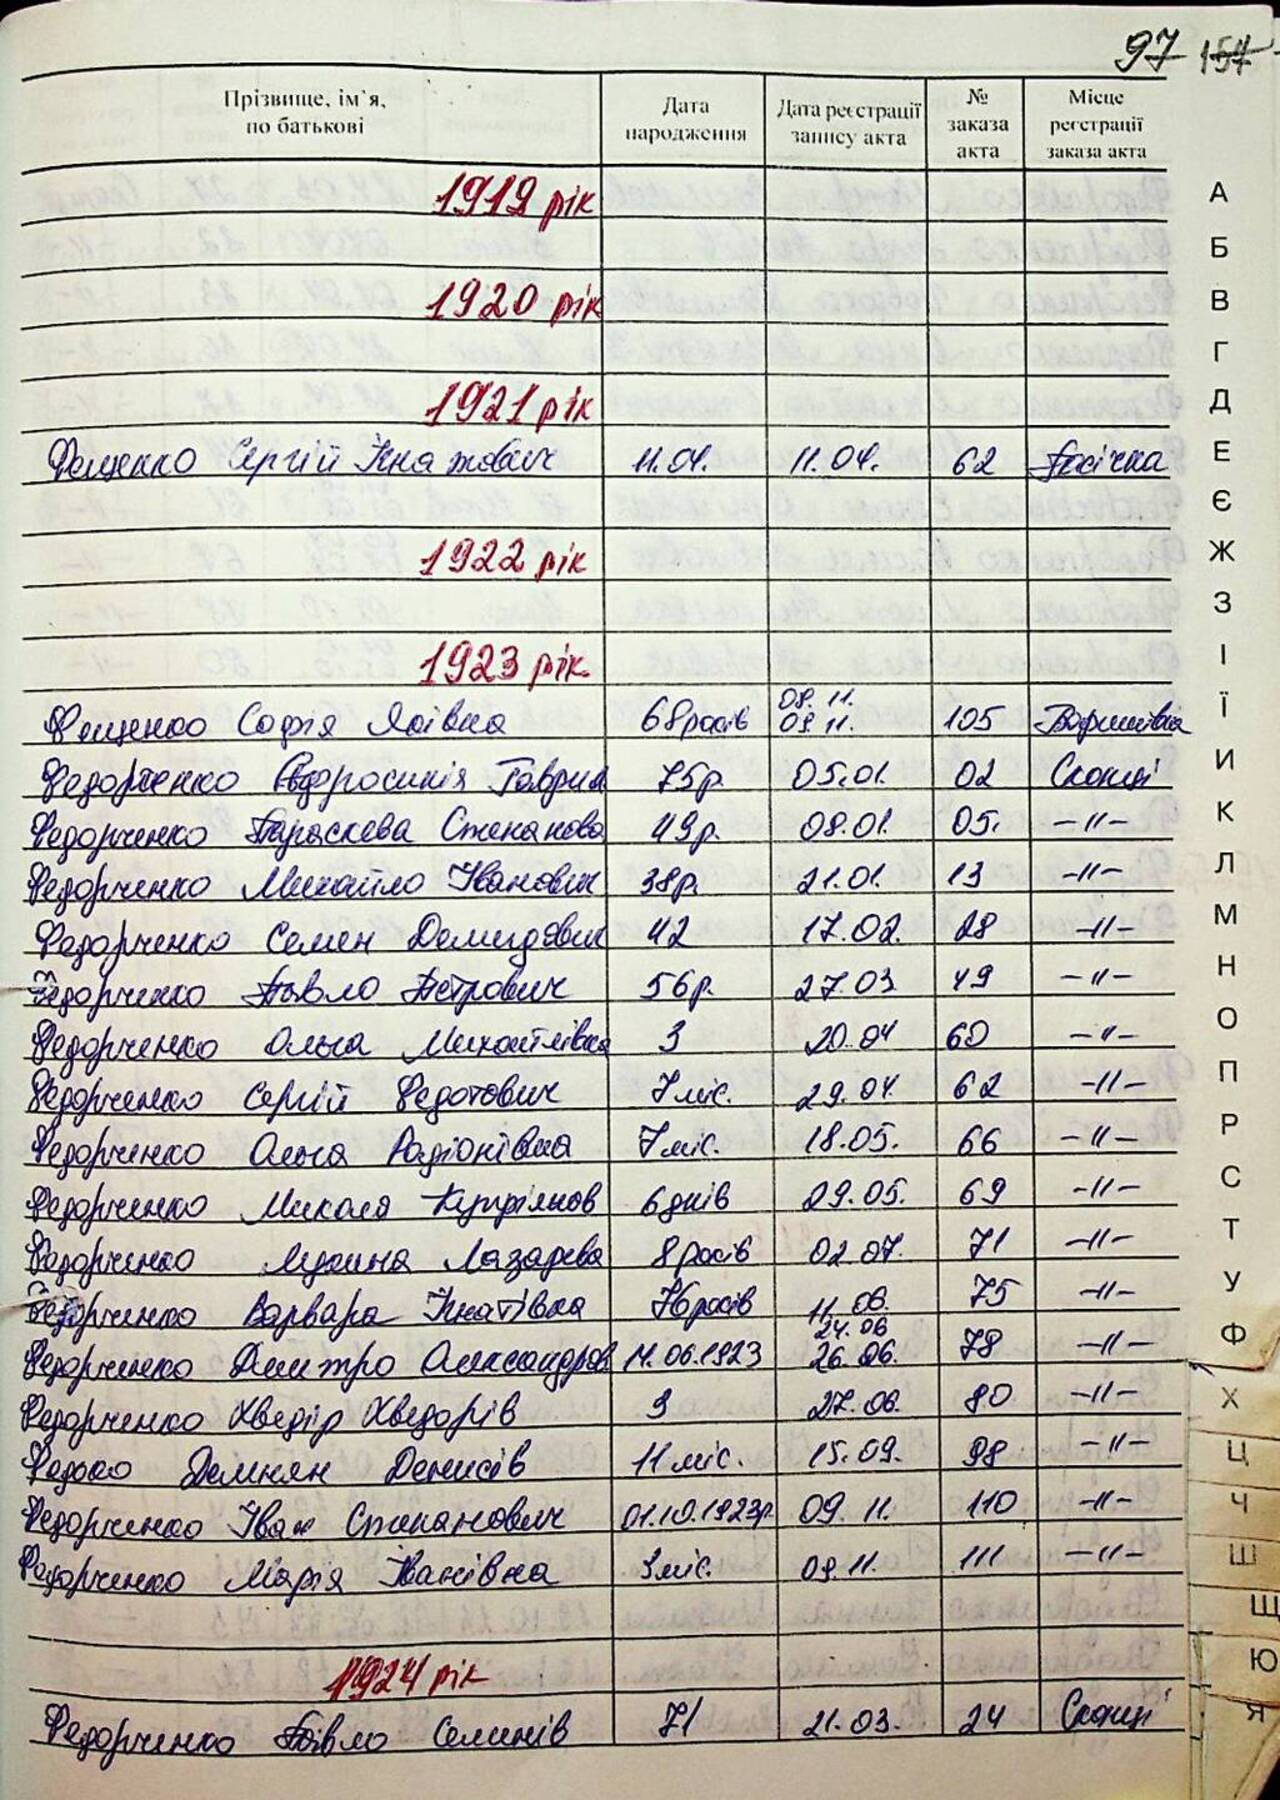 97 157
Прізвище, ім'я, по батькові Дата народження Дата реєстрації запису акта № заказа акта Місце реєстрації заказа акта
1919 рік
1920 рік
1921 рік
Фещенко Сергій Ігнатович 11.04. 11.04. 62 Пасічка
1922 рік
1923 рік
08.11.
Фещенко Софія Яківна 68 років 09.11. 105 Воршівка
Федорченко Євфросинія Гаврил 75р. 05.01. 02 Сконці
Федорченко Параскева Степанова 49р. 08.01. 05. -"-
Федорченко Михайло Іванович 38р. 21.01. 13 -"-
Федорченко Семен Демидович 42 17.02. 28 -"-
Федорченко Павло Петрович 56р. 27.03 49 -"-
Федорченко Ольга Михайлівна 3 20.04 60 -"-
Федорченко Сергій Федотович 7 міс. 29.04. 62 -"-
Федорченко Ольга Радіонівна 7 міс. 18.05. 66 -"-
Федорченко Микола Купріянов 6 днів 29.05. 69 -"-
Федорченко Лазарева 8 років 02.07. 71 -"-
Федорченко Варвара Ігнатівна 76 років 11.06. 75 -"-
24.06
Федорченко Дмитро Олександров 14.06.1923 26.06. 78 -"-
Федорченко Хведір Хведорів 3 27.06. 80 -"-
Демнян Денисів 11 міс. 15.09. 98 -"-
Федорченко Іван Степанович 01.10.1923р 09.11. 110 -"-
Федорченко Марія Іванівна 3 міс. 09.11. 111 -"-
1924 рік
Федорченко Павло Семенів 71 21.03. 24 Сконці
А
Б
В
Г
Д
Е
Є
Ж
З
І
Ї
И
К
Л
М
Н
О
П
Р
С
Т
У
Ф
Х
Ц
Ч
Ш
Щ
Ю
Я